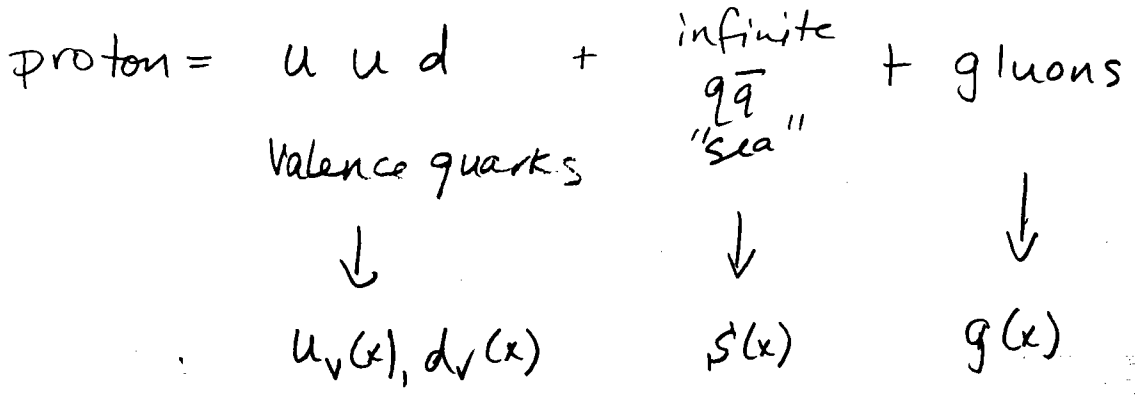 proton = u u d + infinite qq̄ "sea" + gluons
valence quarks
↓ ↓ ↓
u_v(x), d_v(x) S(x) g(x)